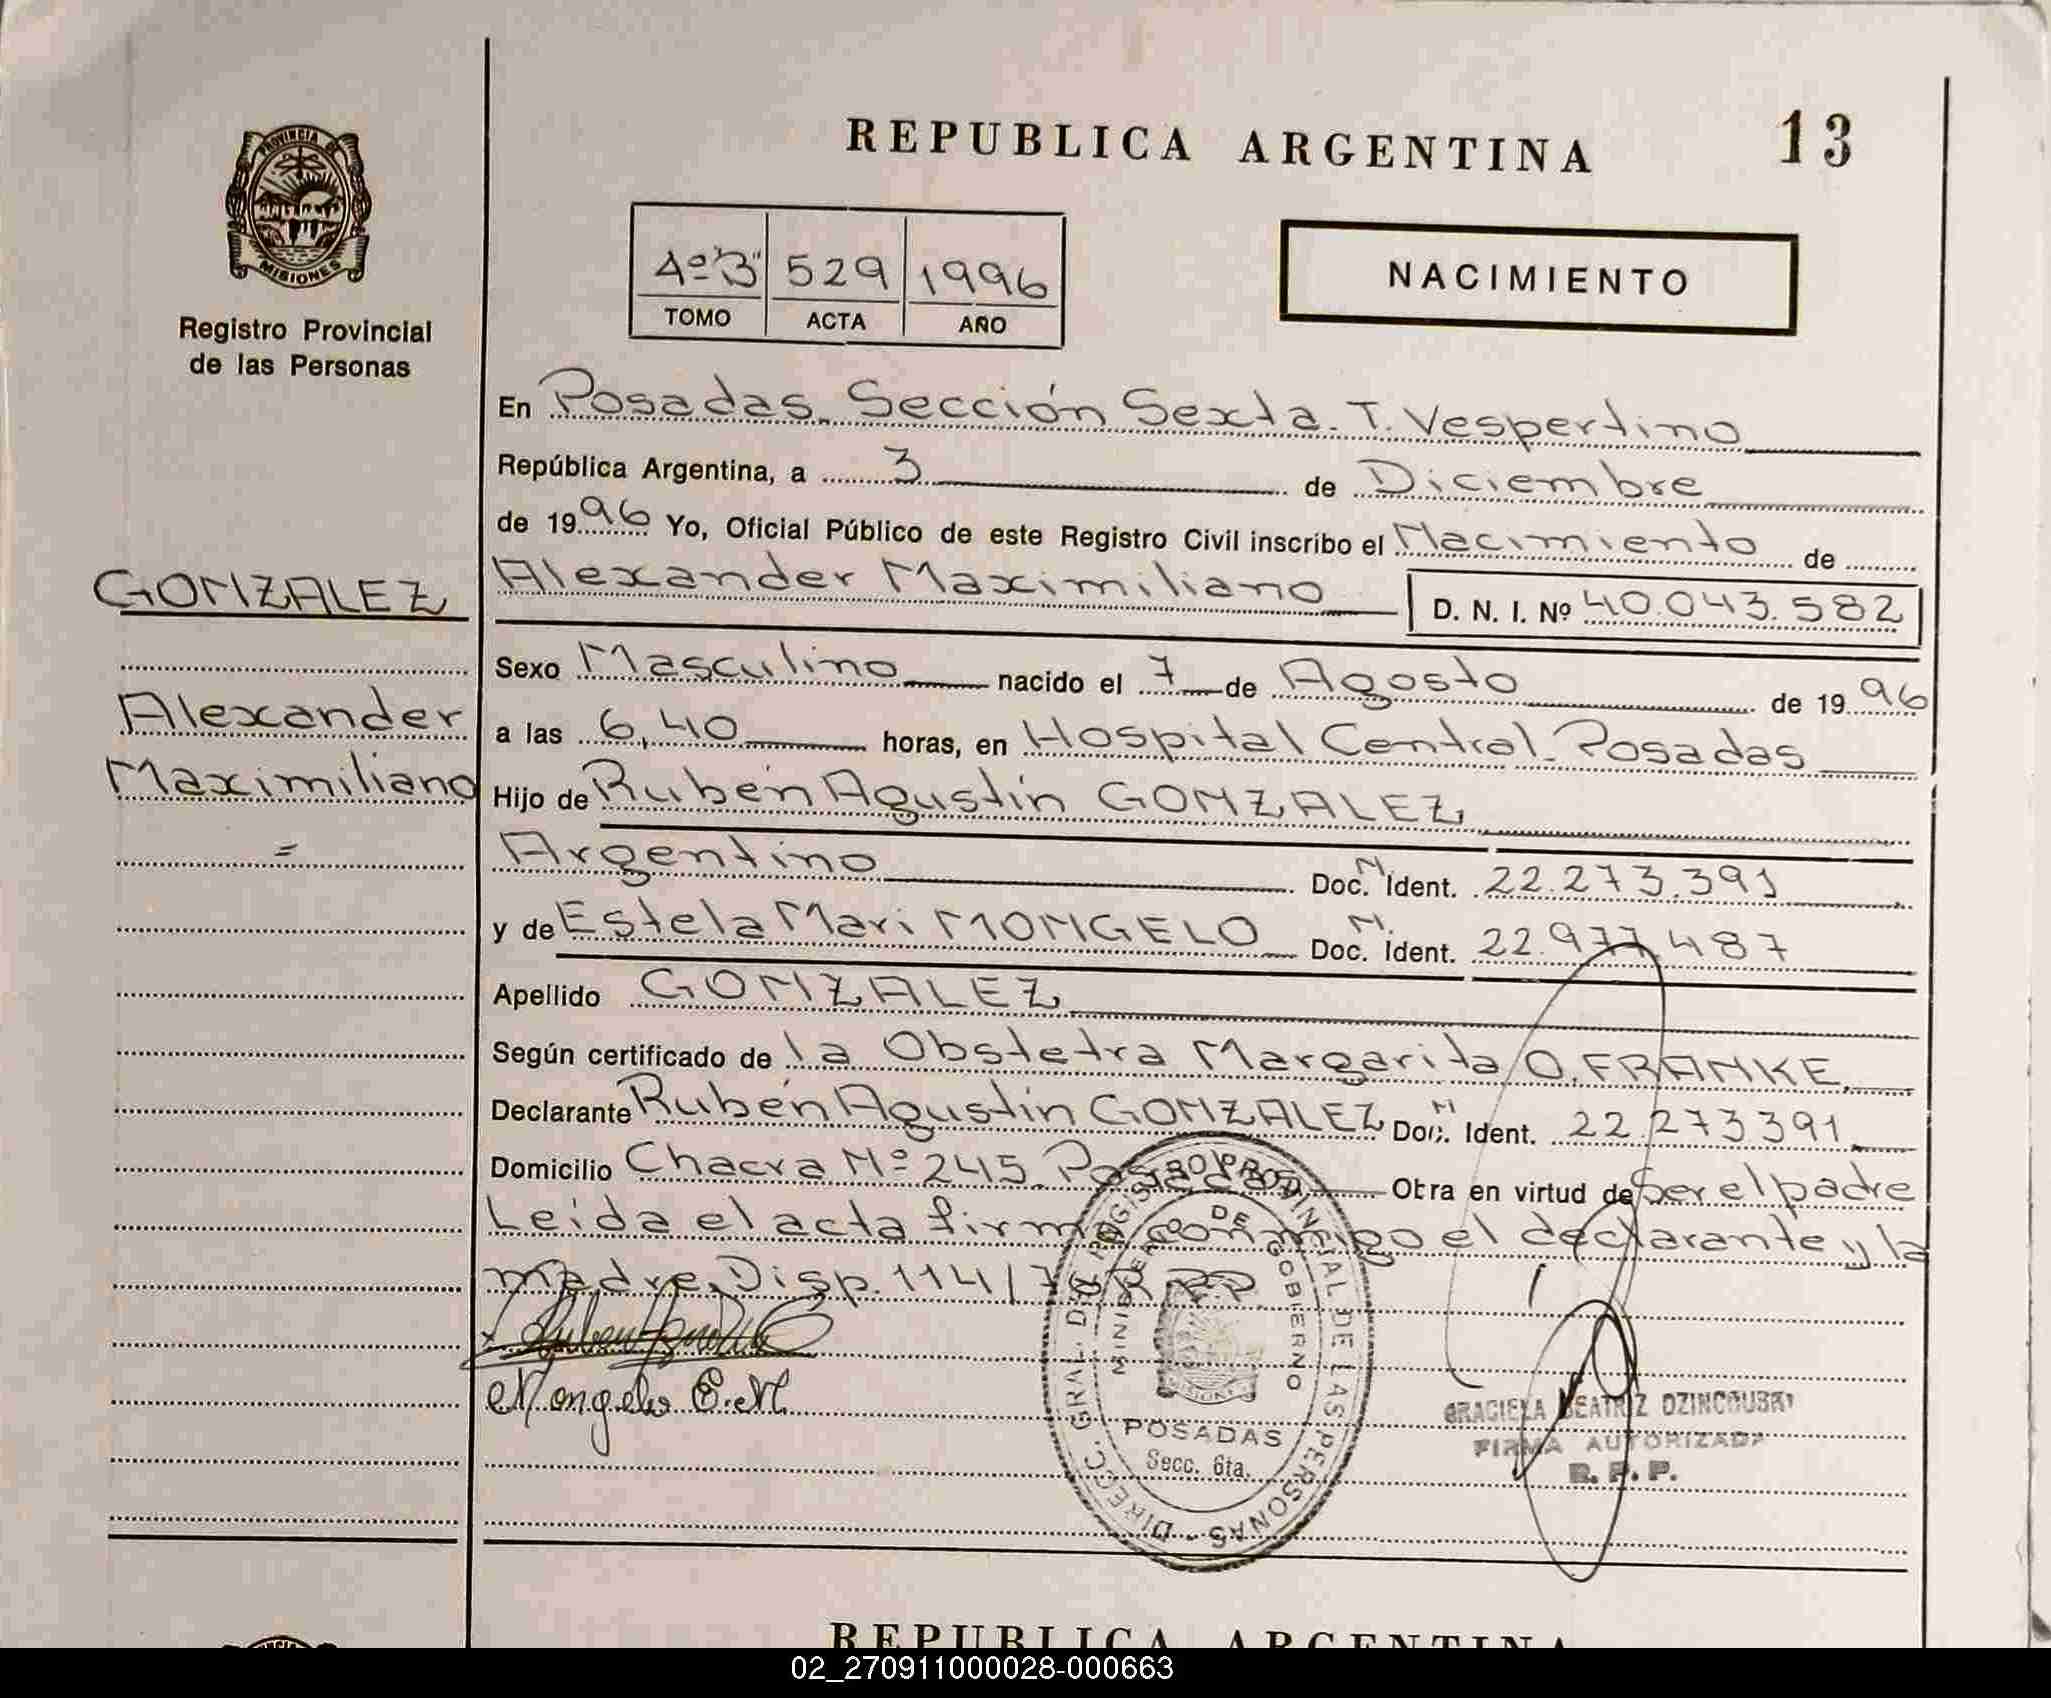 REPUBLICA ARGENTINA
13
PROVINCIA DE
MISIONES
Registro Provincial
de las Personas
4º "B" 529 1996
TOMO ACTA AÑO
NACIMIENTO
En Posadas. Sección Sexta. T. Vespertino
República Argentina, a 3 de Diciembre
de 1996 Yo, Oficial Público de este Registro Civil inscribo el Nacimiento de
GONZALEZ
Alexander Maximiliano D. N. I. Nº 40.043.582
Sexo Masculino nacido el 7 de Agosto de 1996
Alexander
a las 6,40 horas, en Hospital Central. Posadas
Maximiliano
Hijo de Rubén Agustín GONZALEZ
=
Argentino Doc. N. Ident. 22.273.391
y de Estela Mari MONGELO Doc. N. Ident. 22.977.487
Apellido GONZALEZ
Según certificado de la Obstetra Margarita O. FRANKE.
Declarante Rubén Agustín GONZALEZ Doc. N Ident. 22.273391
Domicilio Chacra Nº 245. Posadas Otra en virtud de Ser el padre
Leída el acta firma conmigo el declarante y la
madre. Disp. 114/78 R.P.P.
Mongelo E. M.
DIRECC. GRAL. DEL REGISTRO PROVINCIAL DE LAS PERSONAS -
MINISTERIO DE GOBIERNO
MISIONES
POSADAS
Secc. 6ta.
GRACIELA BEATRIZ DZINCOUSKI
FIRMA AUTORIZADA
R. P. P.
REPUBLICA ARGENTINA
02_270911000028-000663